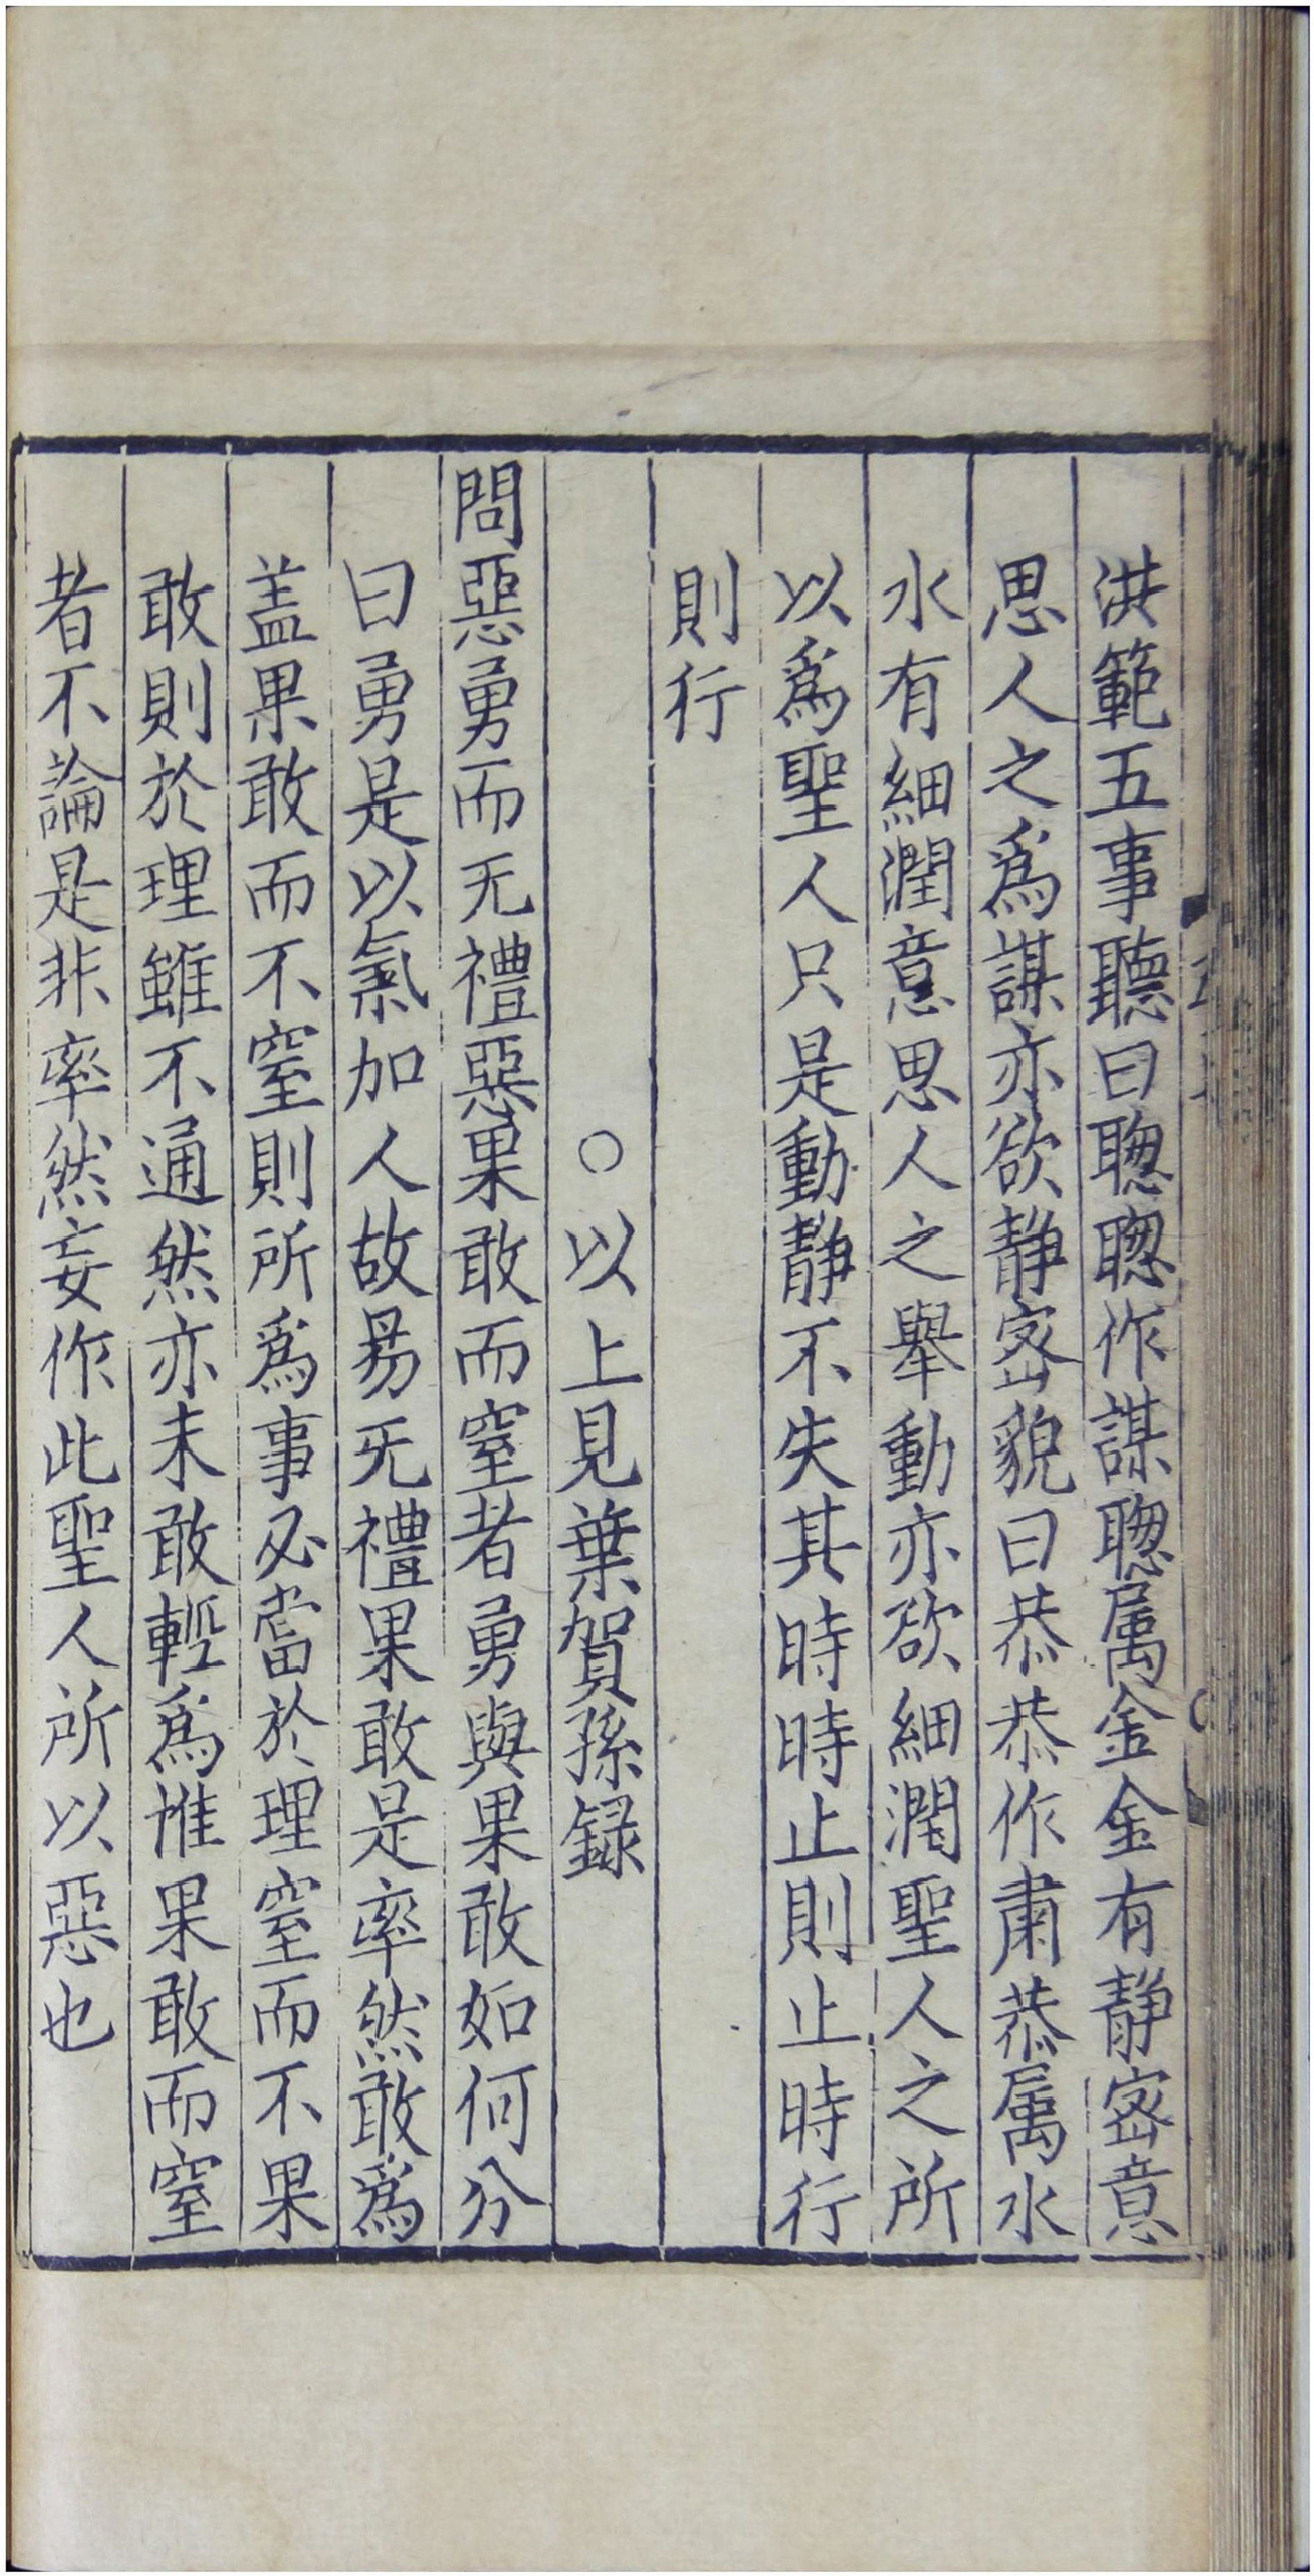 洪範五事聽曰聦聦作謀聦属金金有静宻意
思人之為謀亦欲静宻貌曰恭恭作肅恭属水
水有細潤意思人之舉動亦欲細潤聖人之所
以為聖人只是動静不失其時時止則止時行
則行
○以上見葉賀孫録
問惡勇而无禮惡果敢而窒者勇與果敢如何分
曰勇是以氣加人故昜无禮果敢是率然敢為
盖果敢而不窒則所為事必當於理窒而不果
敢則於理雖不通然亦未敢輕為惟果敢而窒
者不論是非率然妄作此聖人所以惡也